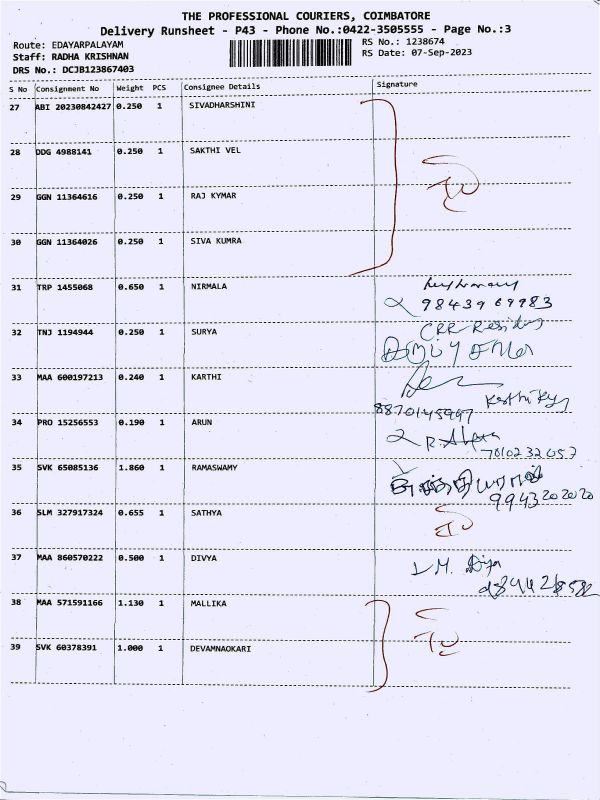 THE PROFESSIONAL COURIERS, COIMBATORE
Delivery Runsheet - P43 - Phone No.:0422-3505555 - Page No.:3
Route: EDAYARPALAYAM RS No.: 1238674
Staff: RADHA KRISHNAN RS Date: 07-Sep-2023
DRS No.: DCJB123867403
S No Consignment No Weight PCS Consignee Details Signature
27 ABI 20230842427 0.250 1 SIVADHARSHINI
28 DDG 4988141 0.250 1 SAKTHI VEL
29 GGN 11364616 0.250 1 RAJ KYMAR
30 GGN 11364026 0.250 1 SIVA KUMRA
31 TRP 1455068 0.650 1 NIRMALA
9843969983
32 TNJ 1194944 0.250 1 SURYA
CRR
33 MAA 600197213 0.240 1 KARTHI
8870145997
34 PRO 15256553 0.190 1 ARUN
R.
7010232057
35 SVK 65085136 1.860 1 RAMASWAMY
9943202020
36 SLM 327917324 0.655 1 SATHYA
37 MAA 860570222 0.500 1 DIVYA
M. Divya
38 MAA 571591166 1.130 1 MALLIKA
39 SVK 60378391 1.000 1 DEVAMNAOKARI